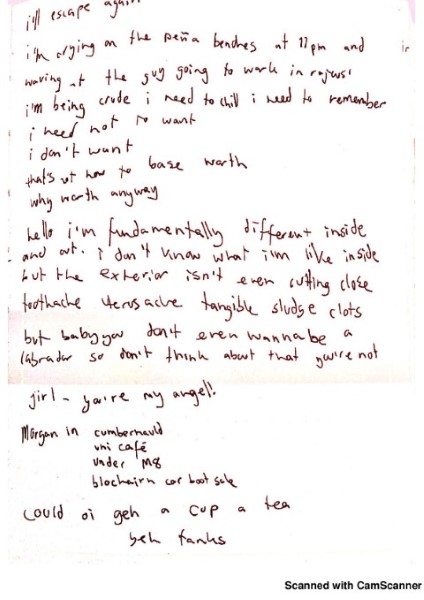 i'll escape again
i'm crying on the peña benches at 11pm and
waving at the guy going to work in
i'm being crude i need to chill i need to remember
i need not to want
i don't want
that's not how to base worth
why worth anyway
hello i'm fundamentally different inside
and out. i don't know what i'm like inside
but the exterior isn't even cutting close
toothache uterusache tangible sludge clots
but baby you don't even wannabe a
labrador so don't think about that you're not
girl - you're my angel!
Morgan in cumbernauld
uni café
under M8
blochairn car boot sale
could oi geh a cup a tea
yeh fanks
Scanned with CamScanner